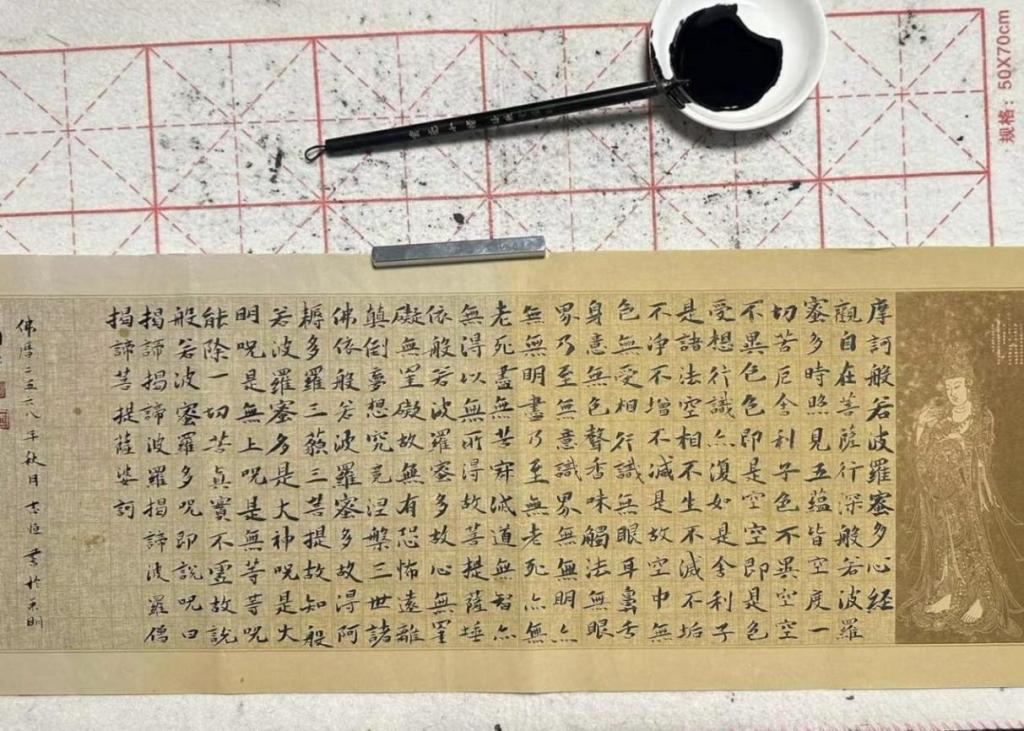 规格：50X70cm
摩訶般若波羅蜜多心經
觀自在菩薩行深般若波羅
蜜多時照見五蘊皆空度一
切苦厄舍利子色不異空空
不異色色即是空空即是色
受想行識亦復如是舍利子
是諸法空相不生不滅不垢
不净不增不減是故空中無
色無受相行識無眼耳鼻舌
身意無色聲香味觸法無眼
界乃至無意識界無無明亦
無無明盡乃至無老死亦無
老死盡無苦滅道無智亦
無得以無所得故菩提薩埵
依般若波羅蜜多故心無罣
礙無罣礙故無有恐怖遠離
顛倒夢想究竟涅槃三世諸
佛依般若波羅蜜多故得阿
耨多羅三藐三菩提故知般
若波羅蜜多是大神呪是大
明呪是無上呪是無等等呪
能除一切苦真實不虛故說
般若波蜜羅多呪即說呪曰
揭諦揭諦波羅揭諦波羅僧
揭諦菩提薩婆訶
佛曆二五六八年秋月吉恒書於昆明